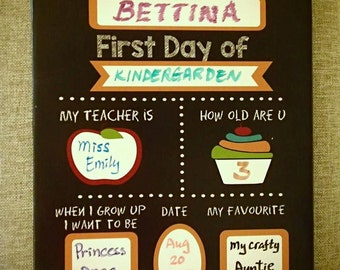 BETTINA
First Day of
KINDERGARDEN
MY TEACHER IS
Miss
Emily
HOW OLD ARE U
3
WHEN I GROW UP
I WANT TO BE
Princess
DATE
Aug
20
MY FAVOURITE
my crafty
Auntie